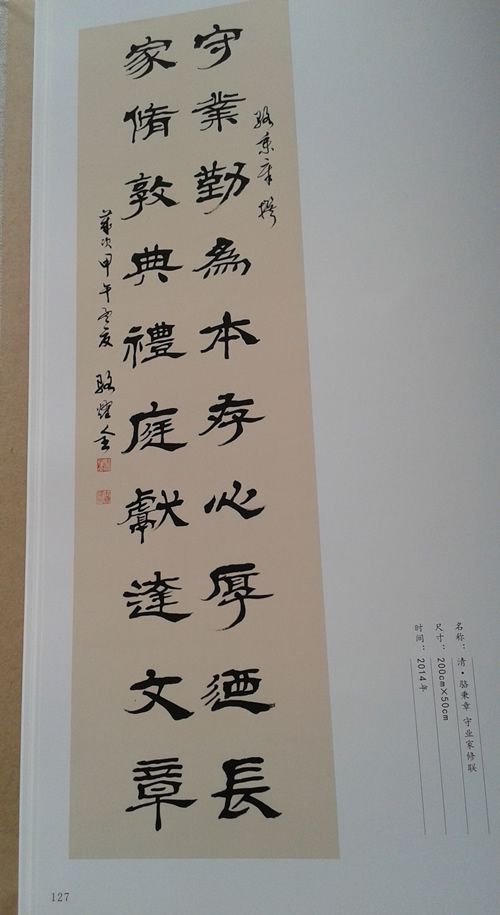 守業勤為本存心厚迺長
駱秉章撰
家脩敦典禮庭獻達文章
歲次甲午孟夏 駱
名称：清·骆秉章 守业家修联
尺寸：200cm×50cm
时间：2014年
127